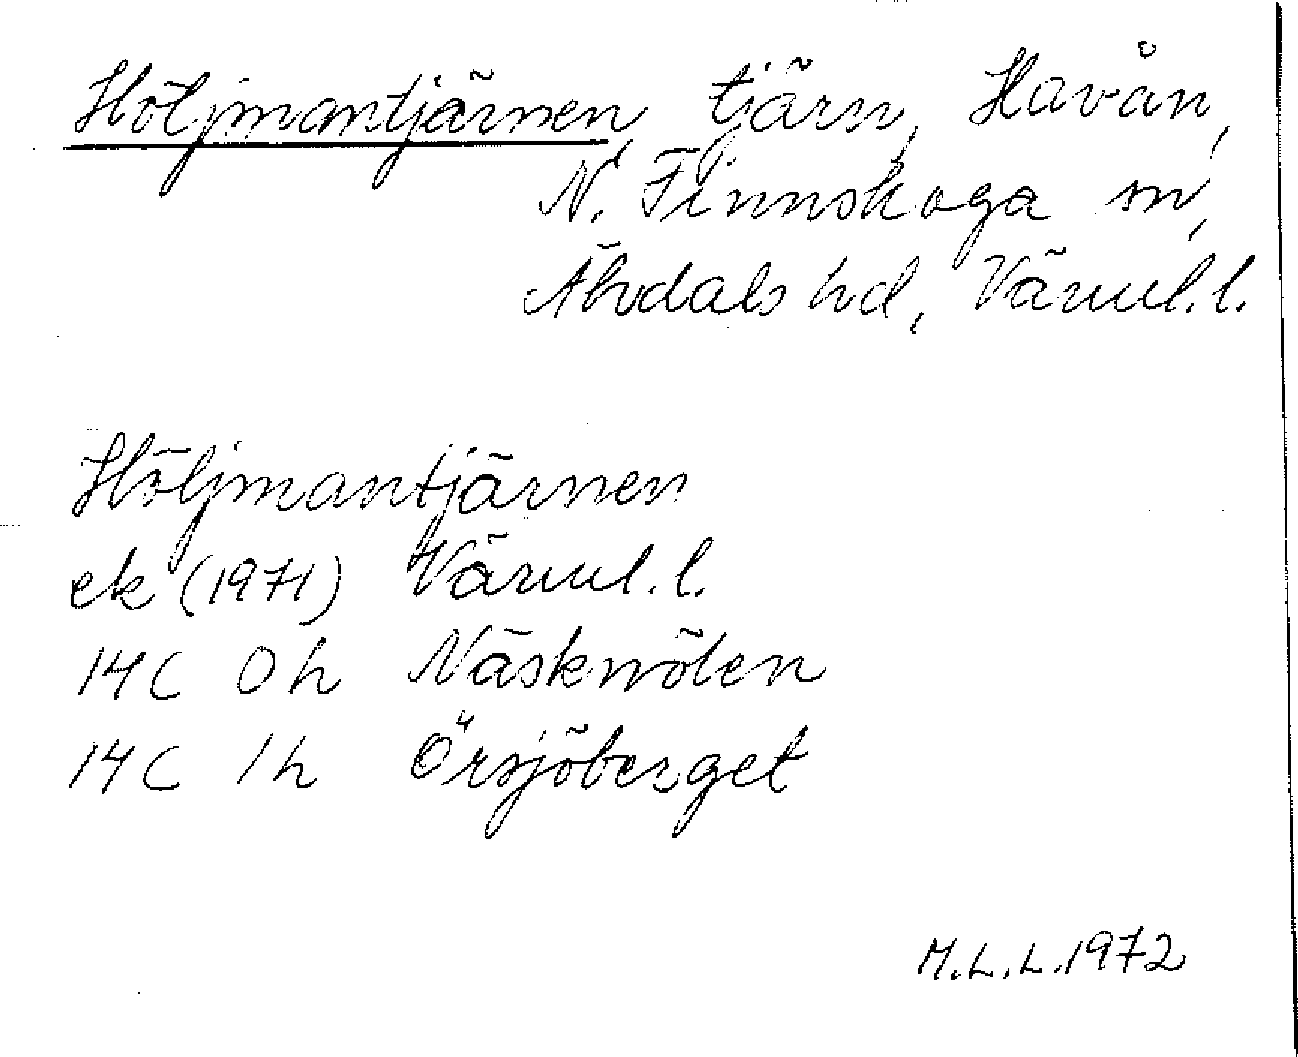 Höljmantjärnen, tjärn, Havån,
N. Finnskoga sn,
Älvdals hd, Värml. l.
Höljmantjärnen
ek (1971) Värml. l.
14C 0h Näsknölen
14C 1h Örsjöberget
M.L.L. 1972